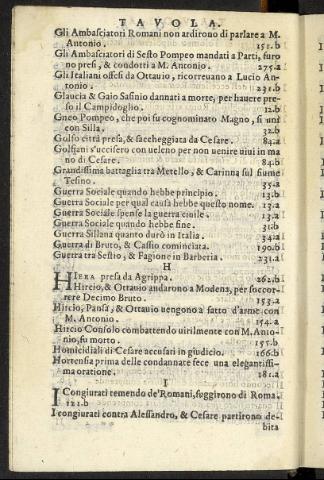 TAVOLA.
Gli Ambasciatori Romani non ardirono di parlare a M.
Antonio. 151.b
Gli Ambasciatori di Sesto Pompeo mandati a Parti, furo
no presi, & condotti a M. Antonio. 275.a
Gli Italiani offesi da Ottauio, ricorreuano a Lucio An-
tonio. 231.b
Glaucia & Gaio Safinio dannati a morte, per hauere pre-
so il Campidoglio. 22.b
Gneo Pompeo, che poi fu cognominato Magno, si unì
con Silla. 32.b
Golfo città presa, & saccheggiata da Cesare. 83.a
Golfiani s'uccisero con ueleno per non uenire uiui in ma
no di Cesare. 84.b
Grandissima battaglia tra Metello, & Carinna sul fiume
Tesino. 35.a
Guerra Sociale quando hebbe principio. 13.b
Guerra Sociale per qual causa hebbe questo nome. 13.a
Guerra Sociale spense la guerra ciuile. 13.a
Guerra Sociale quando hebbe fine. 31.b
Guerra Sillana quanto durò in Italia. 34.a
Guerra di Bruto, & Cassio cominciata. 190.b
Guerra tra Sestio, & Fagione in Barberia. 231.a
H
HIERA presa da Agrippa. 262.b
Hircio, & Ottauio andarono a Modena, per soccor-
rere Decimo Bruto. 153.a
Hircio, Pansa, & Ottauio uengono a fatto d'arme con
M. Antonio. 154.a
Hircio Consolo combattendo uirilmente con M. Anto-
nio, fu morto. 155.b
Homicidiali di Cesare accusati in giudicio. 166.b
Hortensia prima delle condannate fece una elegantissi-
ma oratione. 181.a
I
I Congiurati temendo de'Romani, fuggirono di Roma.
121.b
I congiurati contra Alessandro, & Cesare partirono de-
bita